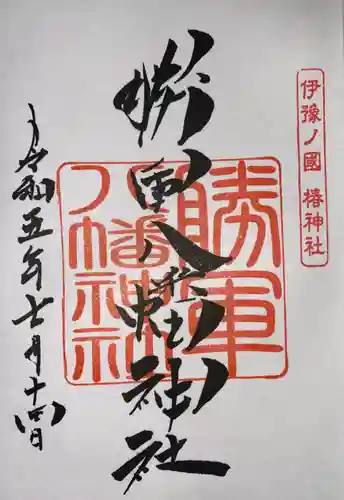 伊豫ノ國 椿神社
勝軍八幡神社
勝軍八幡神社
令和五年七月十四日